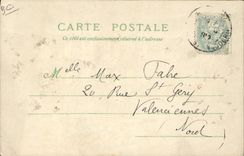 CARTE POSTALE
Ce côté est exclusivement réservé à l'adresse
Melle Max Fabre
20 Rue St Géry
Valenciennes
Nord